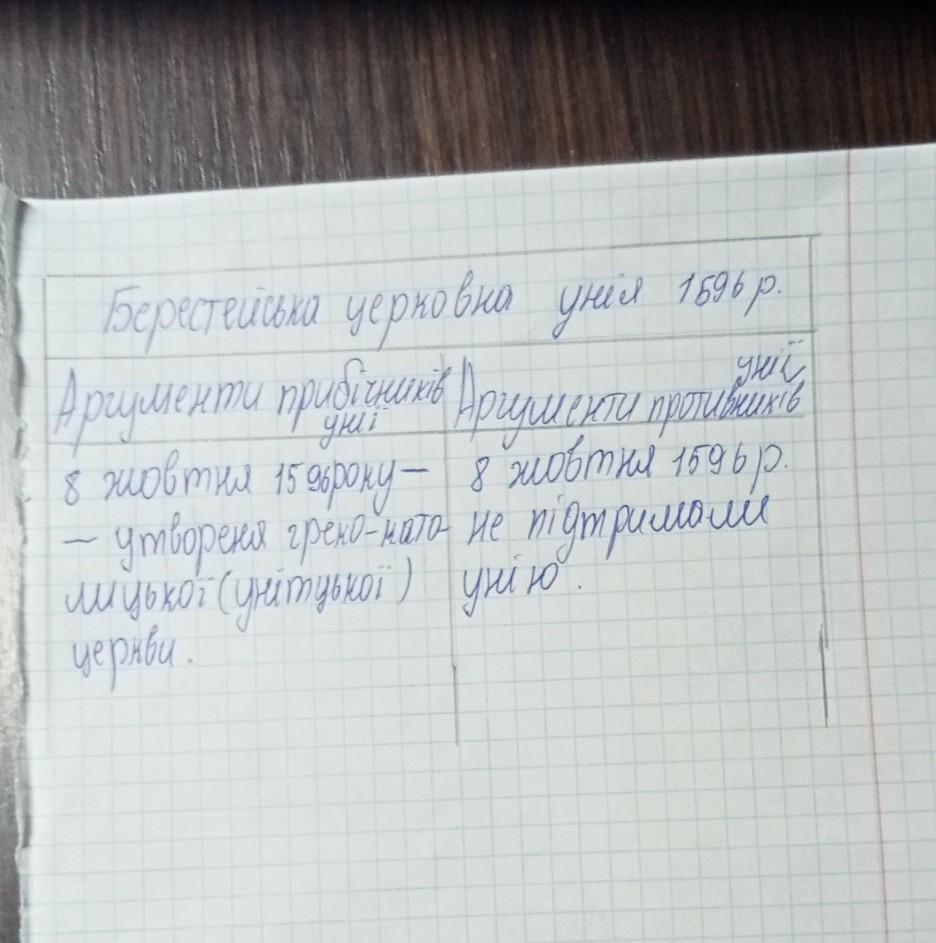 Берестейська церковна унія 1596 р.
Аргументи прибічників
унії
Аргументи противників
унії
8 жовтня 1596 року –
– утвореня греко-като-
лицької (унітцької)
церкви.
8 жовтня 1596 р.
не підтримали
унію.